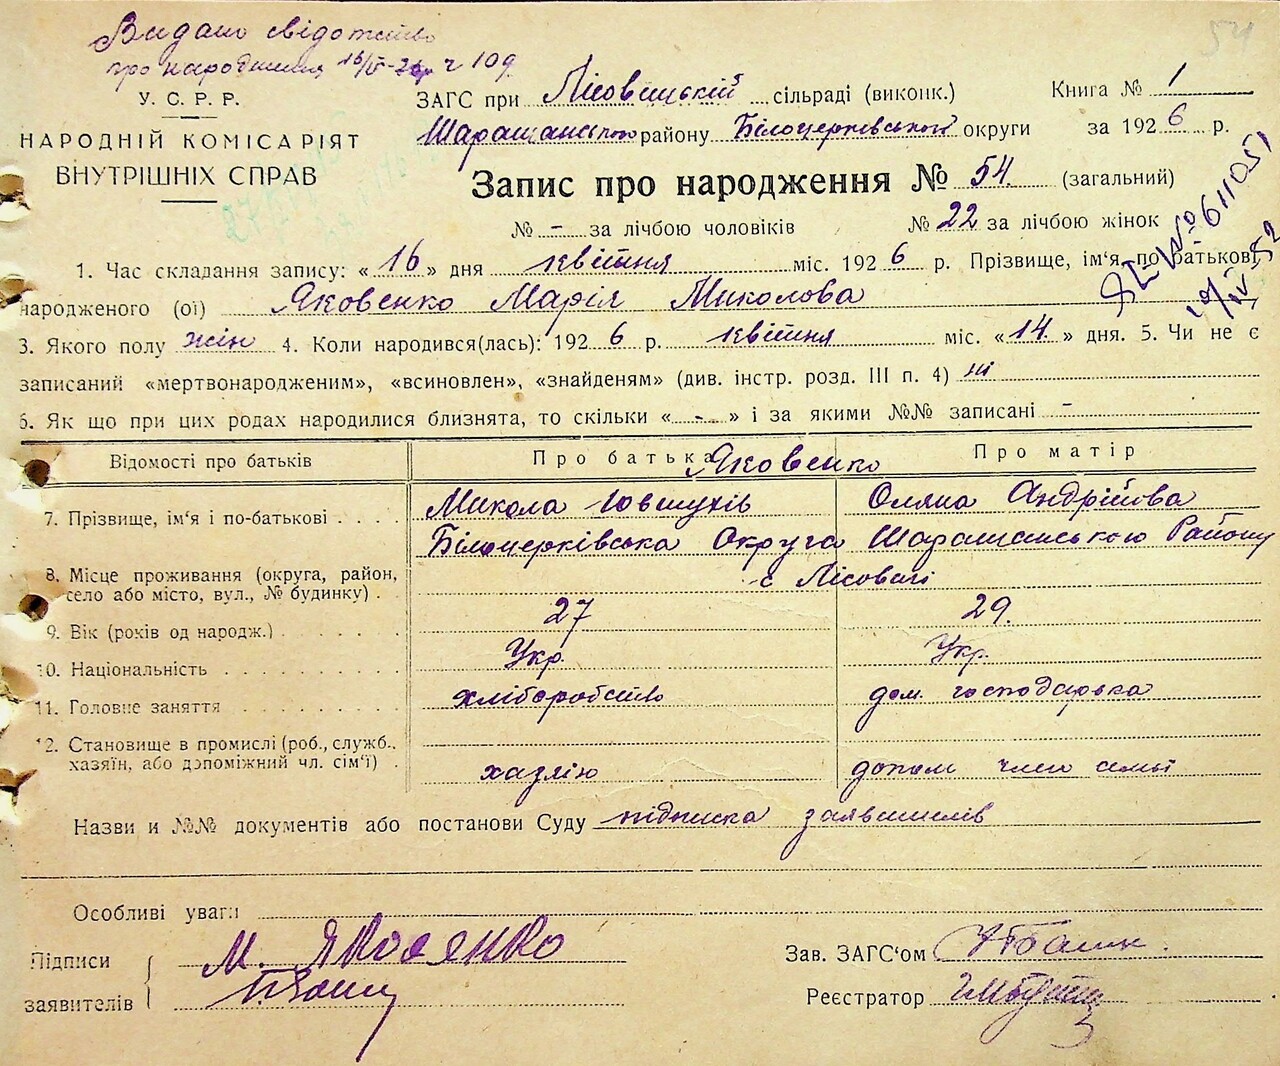 54
Видано свідотство
про народження 16/IV-26р ч 109.
У. С. Р. Р.
НАРОДНІЙ КОМІСАРІЯТ
ВНУТРІШНІХ СПРАВ
ЗАГС при Лісовицькій сільраді (виконк.) Книга № 1
району Білоцерківської округи за 1926 р.
Запис про народження № 54. (загальний)
№ - за лічбою чоловіків № 22 за лічбою жінок
№ 611051
1. Час складання запису: «16» дня квітня міс. 1926 р. Прізвище, ім'я по батькові
народженого (ої) Яковенко Марія Миколова
3. Якого полу жін 4. Коли народився(лась): 1926 р. квітня міс. «14.» дня. 5. Чи не є
записаний «мертвонародженим», «всиновлен», «знайденям» (див. інстр. розд. III п. 4) ні
6. Як що при цих родах народилися близнята, то скільки «-» і за якими №№ записані -
Відомості про батьків Про батька Про матір
Яковенко
7. Прізвище, ім'я і по-батькові Микола Оляна Андрійова
Білоцерківська Округа Району
8. Місце проживання (округа, район,
село або місто, вул., № будинку) с
9. Вік (років од народж.) 27 29.
10. Національність Укр. Укр.
11. Головне заняття хліборобство дом. господарька
12. Становище в промислі (роб., служб.,
хазяїн, або допоміжний чл. сім'ї) хазяїн допом член семьї
Назви и №№ документів або постанови Суду підписка заявителів
Особливі уваги
Підписи М. Яковенко Зав. ЗАГС'ом
заявителів Реєстратор